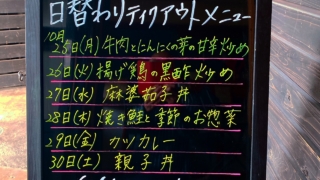 日替わりテイクアウトメニュー
10月
25日(月) 牛肉とにんにくの芽の甘辛炒め
26日(火) 揚げ鶏の黒酢炒め
27日(水) 麻婆茄子丼
28日(木) 焼き鮭と季節のお惣菜
29日(金) カツカレー
30日(土) 親子丼